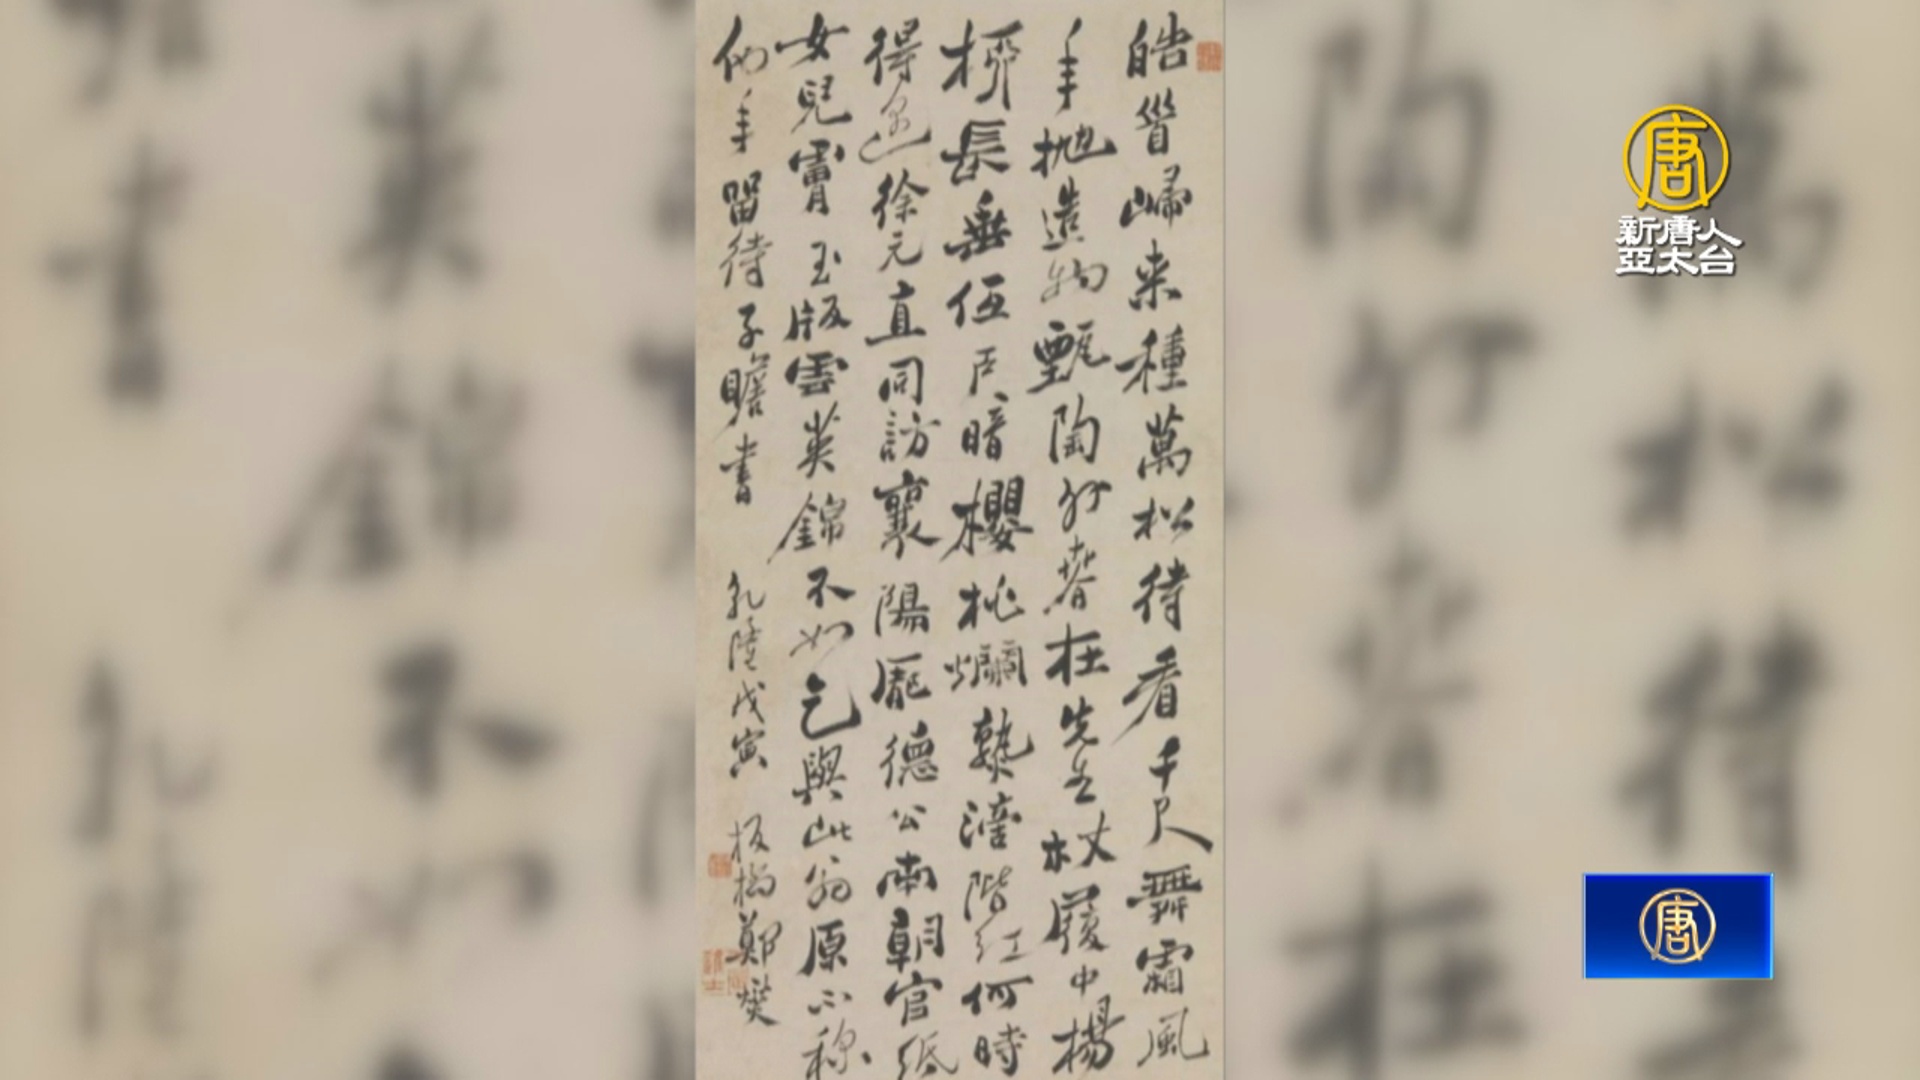 皓首歸来種萬松待看千尺舞霜風
年抛造物甄陶外春在先生杖屨中楊
柳長垂低戶暗櫻桃爛熟滴階紅何時
得邀徐元直同訪襄陽龐德公南朝官紙
女兒膚玉版雲英錦不如乞與此翁原不稱
他年留待子瞻書 乾隆戊寅 板橋鄭燮
唐
新唐人
亞太台
唐